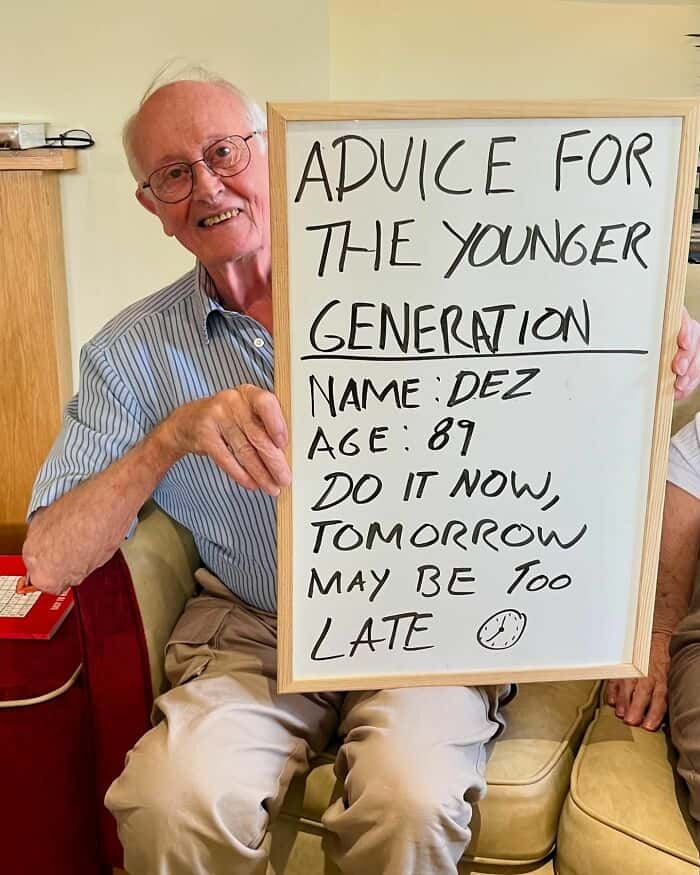 ADVICE FOR
THE YOUNGER
GENERATION
NAME: DEZ
AGE: 89
DO IT NOW,
TOMORROW
MAY BE TOO
LATE